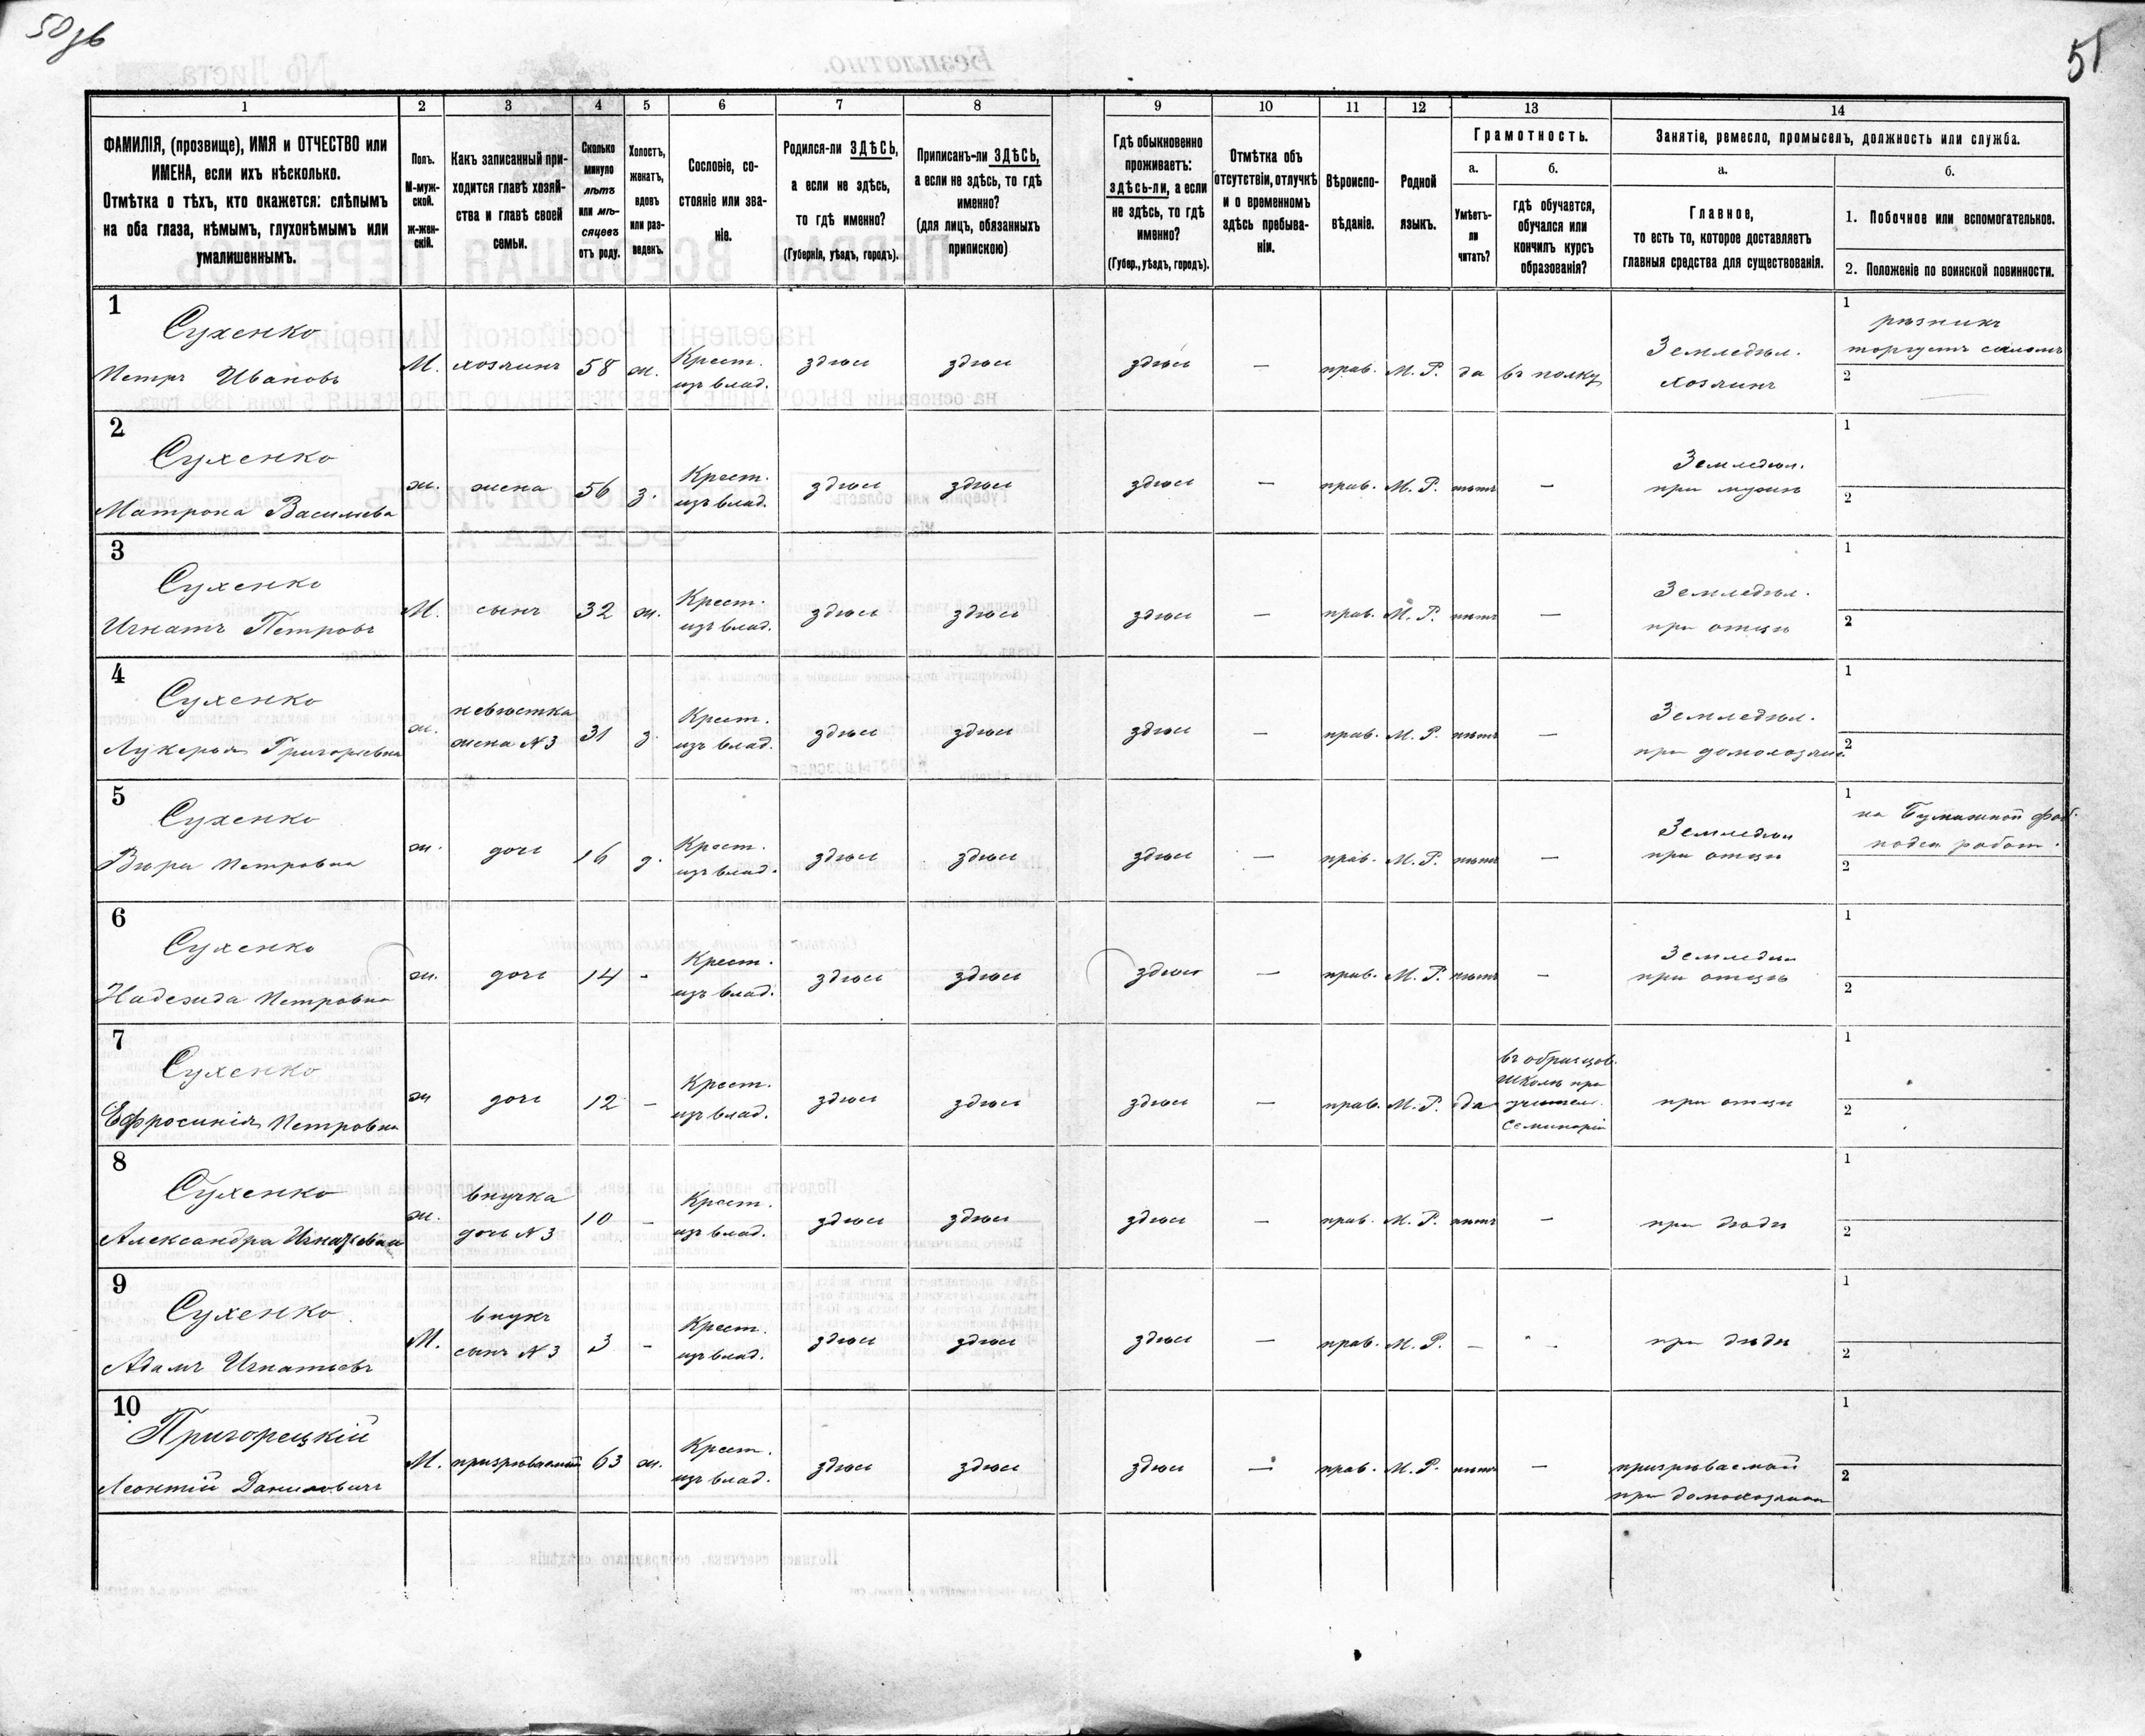 50 зв
51
1
2
3
4
5
6
7
8
9
10
11
12
13
14
ФАМИЛІЯ, (прозвище), ИМЯ и ОТЧЕСТВО или
ИМЕНА, если ихъ нѣсколько.
Отмѣтка о тѣхъ, кто окажется: слѣпымъ
на оба глаза, нѣмымъ, глухонѣмымъ или
умалишеннымъ.
Полъ.
М-муж-
ской.
Ж-жен-
скій.
Какъ записанный при-
ходится главѣ хозяй-
ства и главѣ своей
семьи.
Сколько
минуло
лѣтъ
или мѣ-
сяцевъ
отъ роду.
Холостъ,
женатъ,
вдовъ
или раз-
веденъ.
Сословіе, со-
стояніе или зва-
ніе.
Родился-ли ЗДѢСЬ,
а если не здѣсь,
то гдѣ именно?
(Губернія, уѣздъ, городъ).
Приписанъ-ли ЗДѢСЬ,
а если не здѣсь, то гдѣ
именно?
(для лицъ, обязанныхъ
припискою)
Гдѣ обыкновенно
проживаетъ:
здѣсь-ли, а если
не здѣсь, то гдѣ
именно?
(Губер., уѣздъ, городъ).
Отмѣтка объ
отсутствіи, отлучкѣ
и о временномъ
здѣсь пребыва-
ніи.
Вѣроиспо-
вѣданіе.
Родной
языкъ.
Грамотность.
а.
Умѣетъ-
ли
читать?
б.
гдѣ обучается,
обучался или
кончилъ курсъ
образованія?
Занятіе, ремесло, промыселъ, должность или служба.
а.
Главное,
то есть то, которое доставляетъ
главныя средства для существованія.
б.
1. Побочное или вспомогательное.
2. Положеніе по воинской повинности.
1
Сухенко
Петръ Ивановъ
М. хозяинъ 58 ж. Крест. изъ влад. здѣсь здѣсь здѣсь — прав. М. Р. да въ полку
Земледѣл.
хозяинъ
1 рѣзникъ
торгуетъ саломъ
2
2
Сухенко
Матрона Василіева
ж. жена 56 з. Крест. изъ влад. здѣсь здѣсь здѣсь — прав. М. Р. нѣтъ —
Земледѣл.
при мужѣ
1
2
3
Сухенко
Игнатъ Петровъ
М. сынъ 32 ж. Крест. изъ влад. здѣсь здѣсь здѣсь — прав. М. Р. нѣтъ —
Земледѣл.
при отцѣ
1
2
4
Сухенко
Лукерья Григорьевна
ж. невѣстка жена N 3 31 з. Крест. изъ влад. здѣсь здѣсь здѣсь — прав. М. Р. нѣтъ —
Земледѣл.
при домохозяин
1
2
5
Сухенко
Вѣра Петровна
ж. дочь 16 д. Крест. изъ влад. здѣсь здѣсь здѣсь — прав. М. Р. нѣтъ —
Земледѣл
при отцѣ
1 на Бумажной фаб.
поден работ.
2
6
Сухенко
Надежда Петровна
ж. дочь 14 - Крест. изъ влад. здѣсь здѣсь здѣсь — прав. М. Р. нѣтъ -
Земледѣл
при отцѣ
1
2
7
Сухенко
Ефросинія Петровна
ж дочь 12 — Крест. изъ влад. здѣсь здѣсь здѣсь — прав. М. Р. да
въ образцов.
школѣ при
учител.
семинаріи
при отцѣ
1
2
8
Сухенко
Александра Игнатьева
ж. внучка дочь N 3 10 — Крест. изъ влад. здѣсь здѣсь здѣсь — прав. М. Р. нѣтъ —
при дѣдѣ
1
2
9
Сухенко
Адамъ Игнатьевъ
М. внукъ сынъ N 3 3 - Крест. изъ влад. здѣсь здѣсь здѣсь — прав. М. Р. — -
при дѣдѣ
1
2
10
Пригорецкій
Леонтій Даниловичъ
М. призрѣваемый 63 ж. Крест. изъ влад. здѣсь здѣсь здѣсь — прав. М. Р. нѣтъ —
призрѣваемый
при домохозяин
1
2